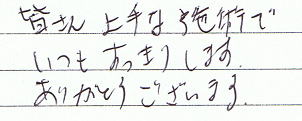 皆さん 上手な施術で
いつもすっきりします.
ありがとうございます.